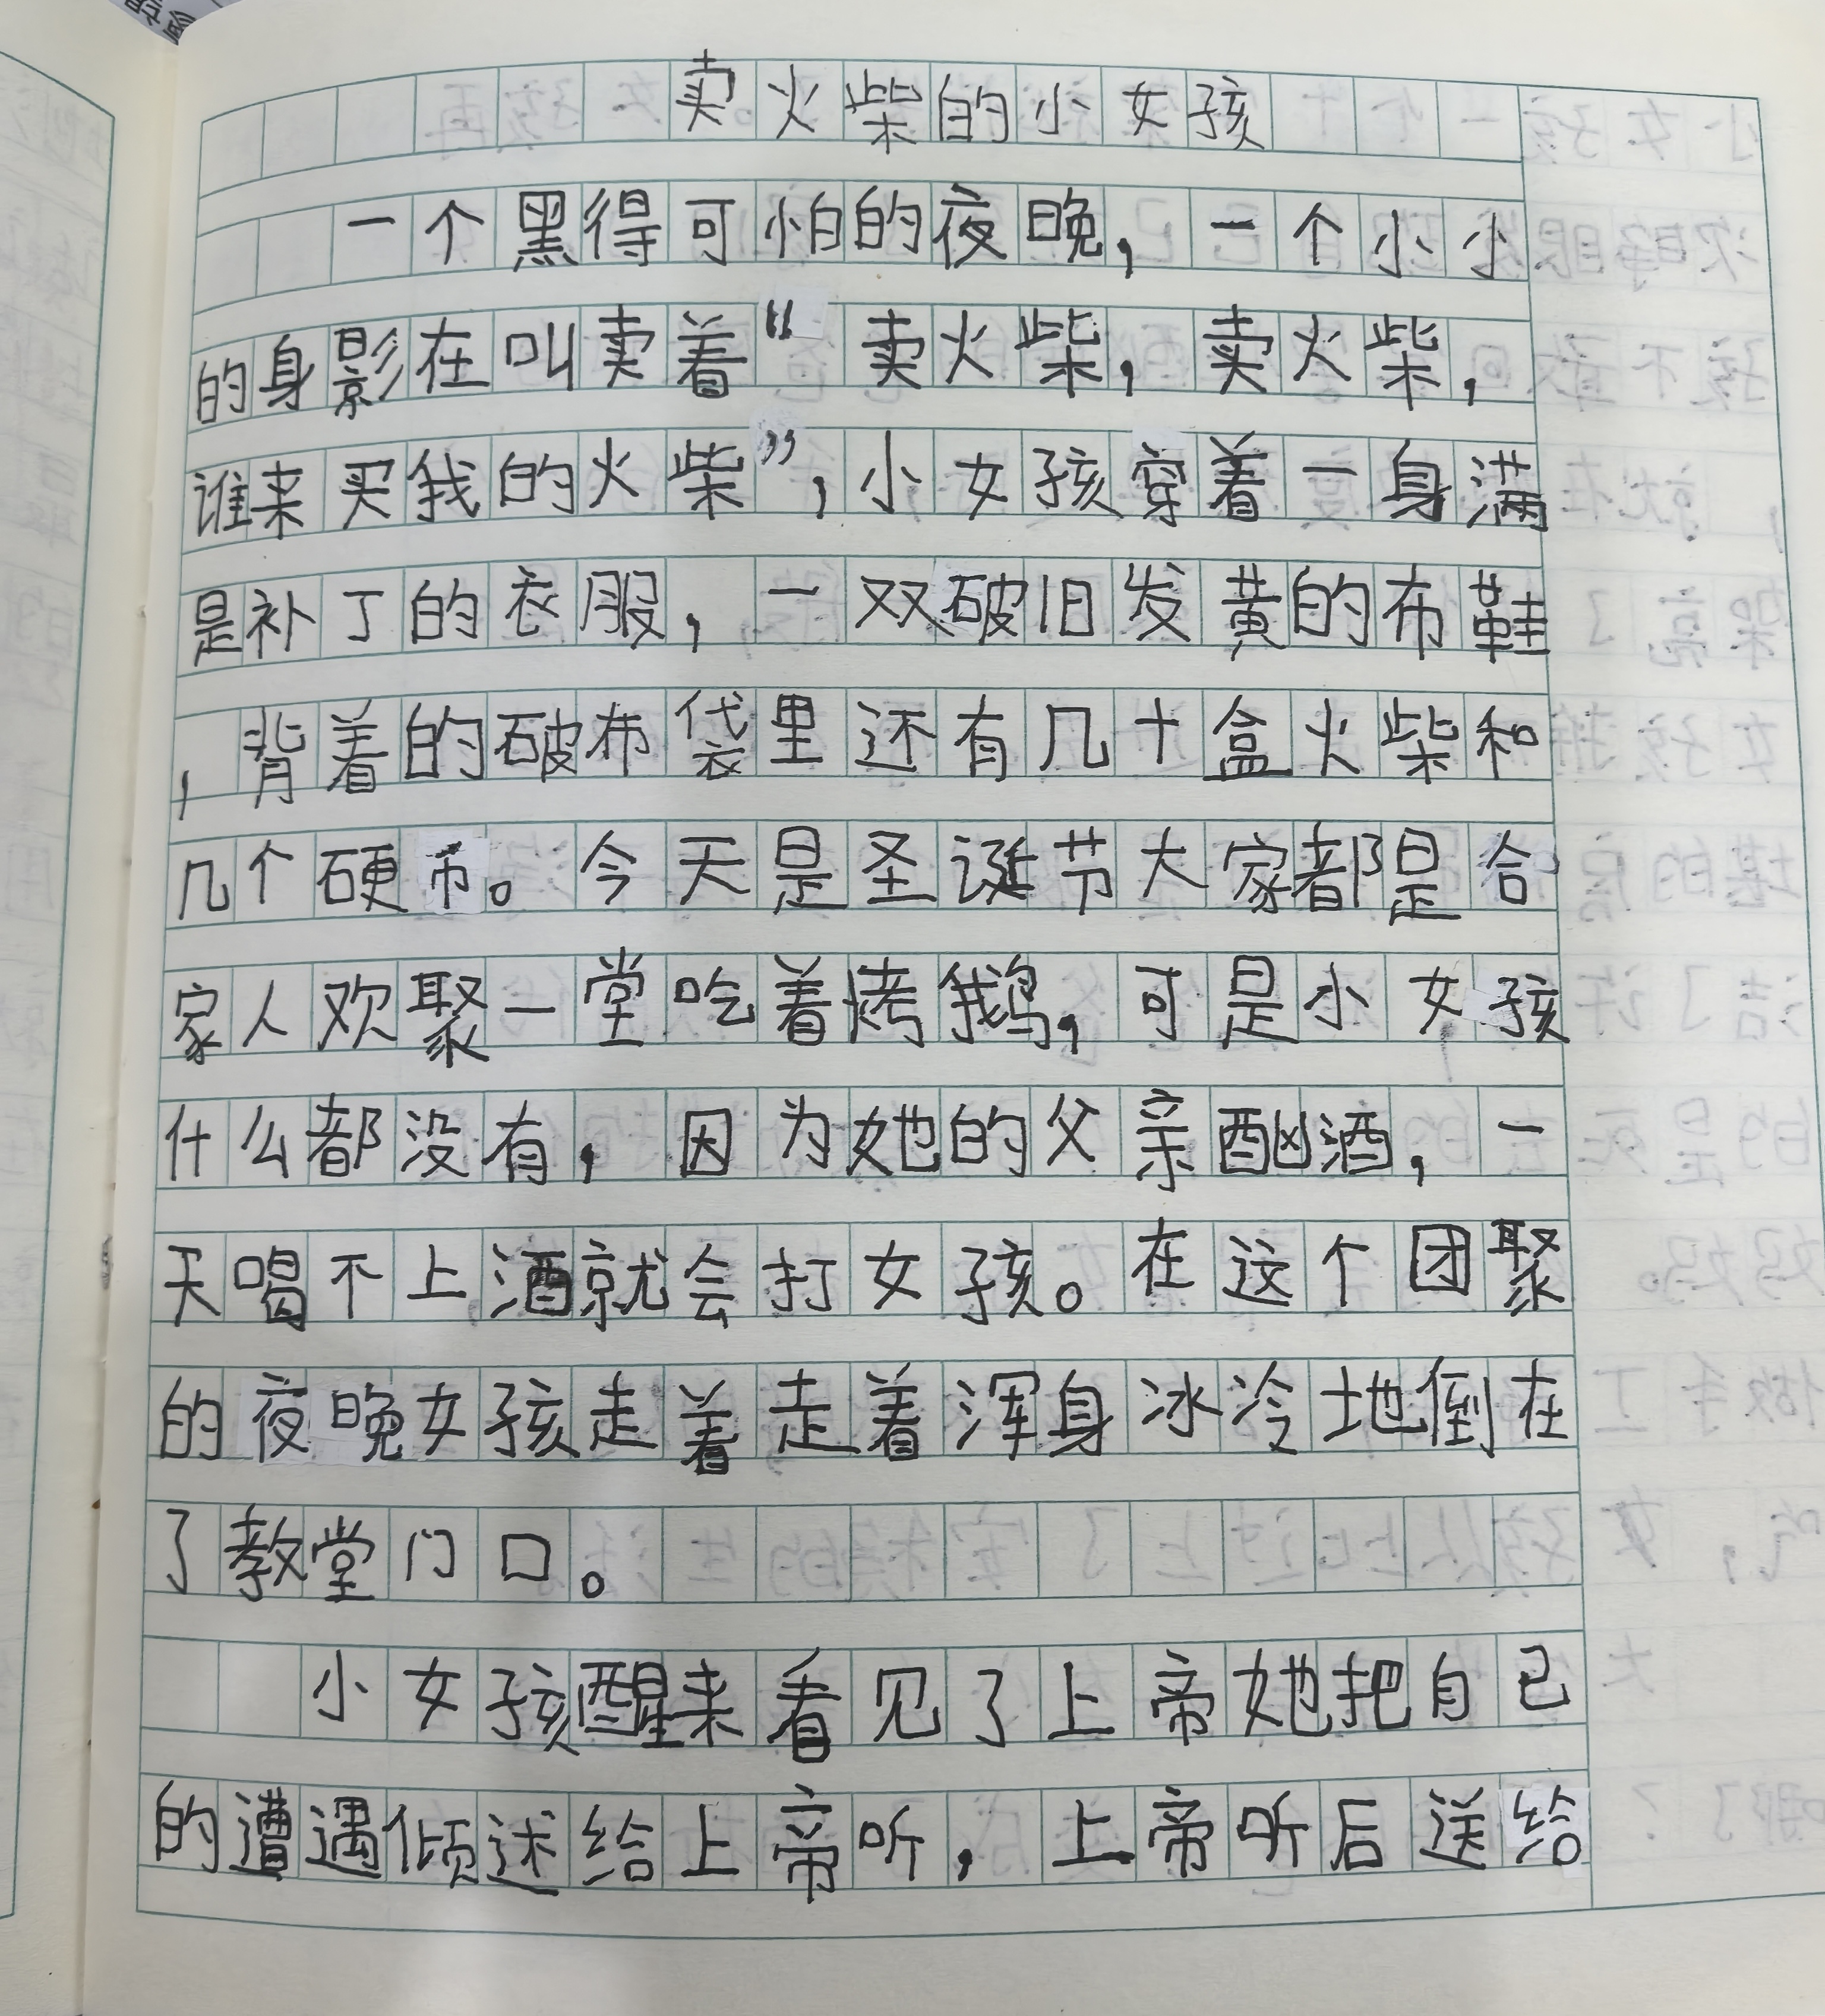 卖火柴的小女孩
一个黑得可怕的夜晚，一个小小
的身影在叫卖着“卖火柴，卖火柴，
谁来买我的火柴”，小女孩穿着一身满
是补丁的衣服，一双破旧发黄的布鞋
，背着的破布袋里还有几十盒火柴和
几个硬币。今天是圣诞节大家都是合
家人欢聚一堂吃着烤鹅，可是小女孩
什么都没有，因为她的父亲酗酒，一
天喝不上酒就会打女孩。在这个团聚
的夜晚女孩走着走着浑身冰冷地倒在
了教堂门口。
小女孩醒来看见了上帝她把自己
的遭遇倾述给上帝听，上帝听后送给